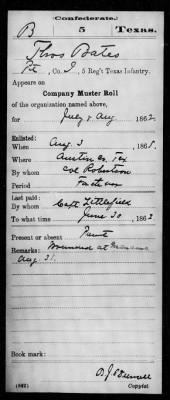 Confederate.
B 5 Texas.
Thos Bates
Pt, Co. I, 5 Reg't Texas Infantry.
Appears on
Company Muster Roll
of the organization named above,
for July & Aug, 1862.
Enlisted:
When Aug 3, 186
Where Austin Co. Tex
By whom Col Robertson
Period
Last paid:
By whom Capt Littlefield
To what time June 30, 1862.
Present or absent
Remarks: Wounded at
Aug 31.
Book mark:
(642) Copyist.